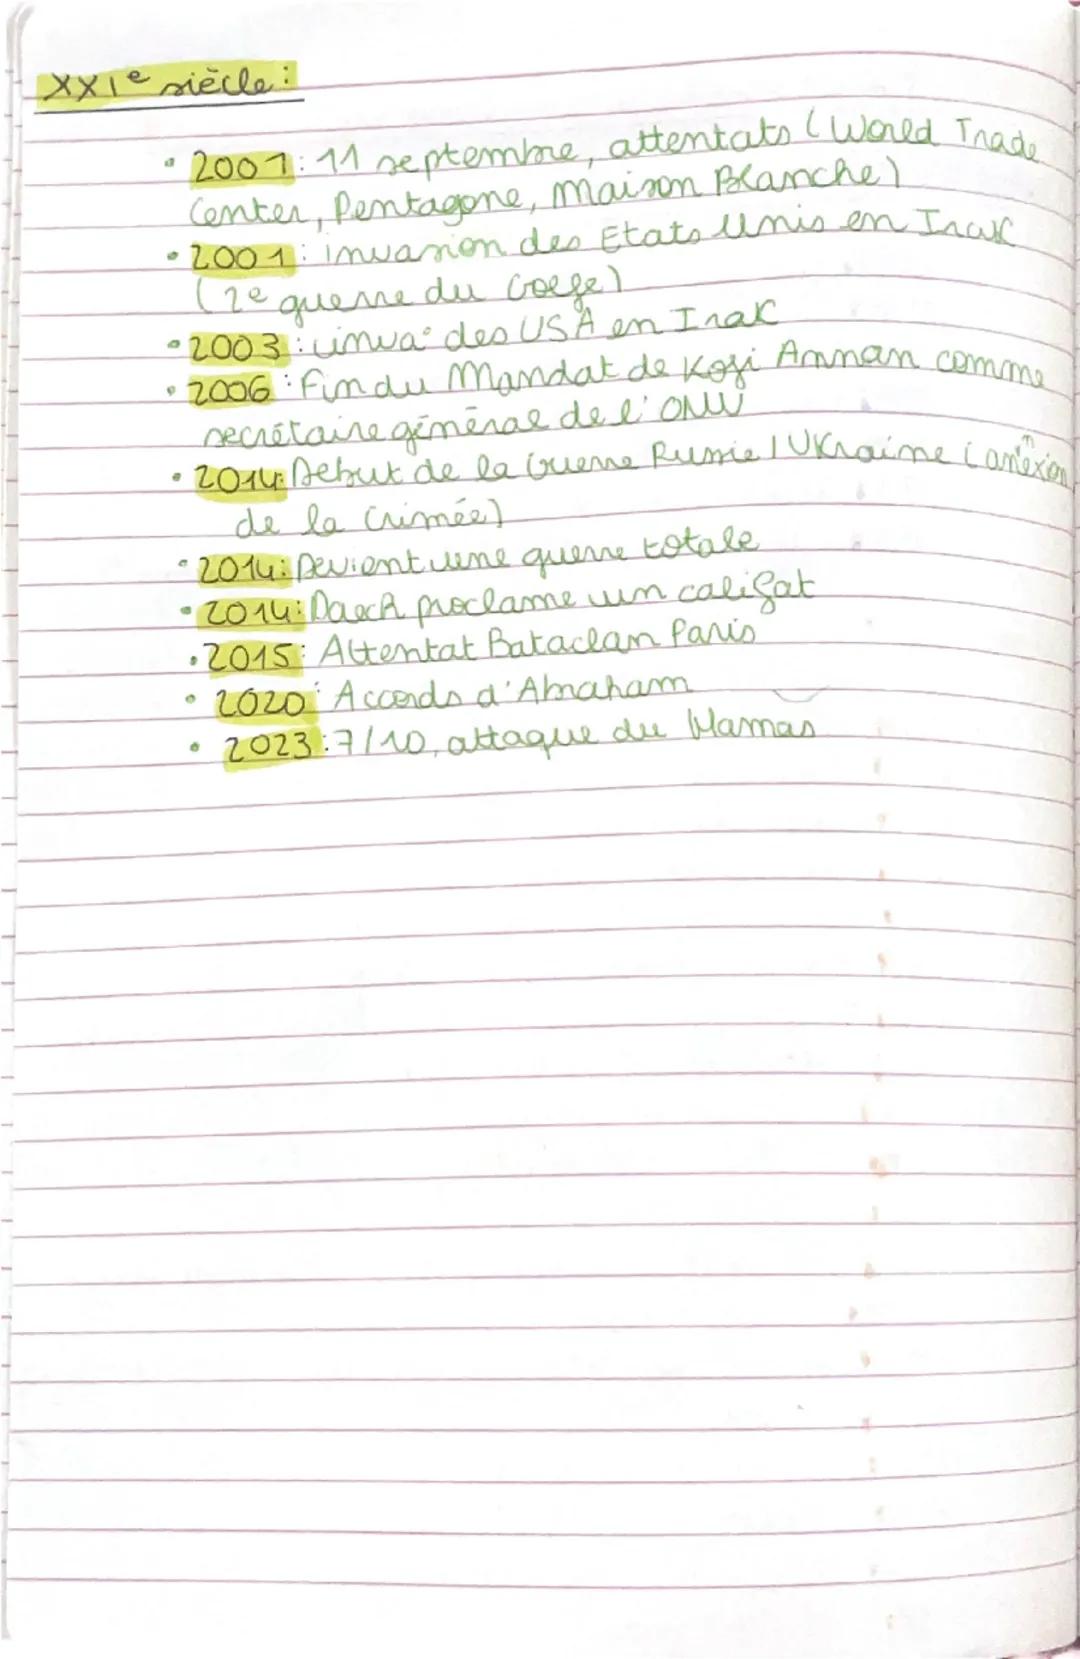 XXIe siècle :
• 2001 : 11 septembre, attentats (World Trade
Center, Pentagone, Maison Blanche)
• 2001 : invasion des Etats Unis en Irak
(2e guerre du Golfe)
• 2003 : inva° des USA en Irak
• 2006 : Fin du Mandat de Kofi Annan comme
secrétaire général de l'ONU
• 2014 : Debut de la Guerre Russie / UKraine (annexion
de la Crimée)
• 2014 : Devient une guerre totale
• 2014 : Daech proclame un califat
• 2015 : Attentat Bataclan Paris
• 2020 : Accords d'Abraham
• 2023 : 7/10, attaque du Hamas